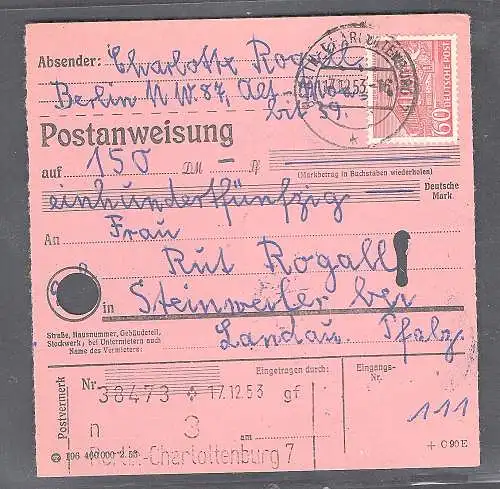 Absender: Charlotte Rogall
Berlin N.W.87, Alt-Moa-
bit 39.
17.12.53
60 DEUTSCHE POST
Postanweisung
auf 150 DM — Pf
(Markbetrag in Buchstaben wiederholen)
einhundertfünfzig
Deutsche Mark.
An Frau
Rut Rogall
in Steinweiler bei
Landau. Pfalz.
Straße, Hausnummer, Gebäudeteil,
Stockwerk; bei Untermietern auch
Name des Vermieters:
Postvermerk
Nr 38473 * 17.12.53 gf
Eingetragen durch:
Eingangs-Nr.
n 3
am
111
Berlin-Charlottenburg 7
106 400 000 2.53
+ C 90 E